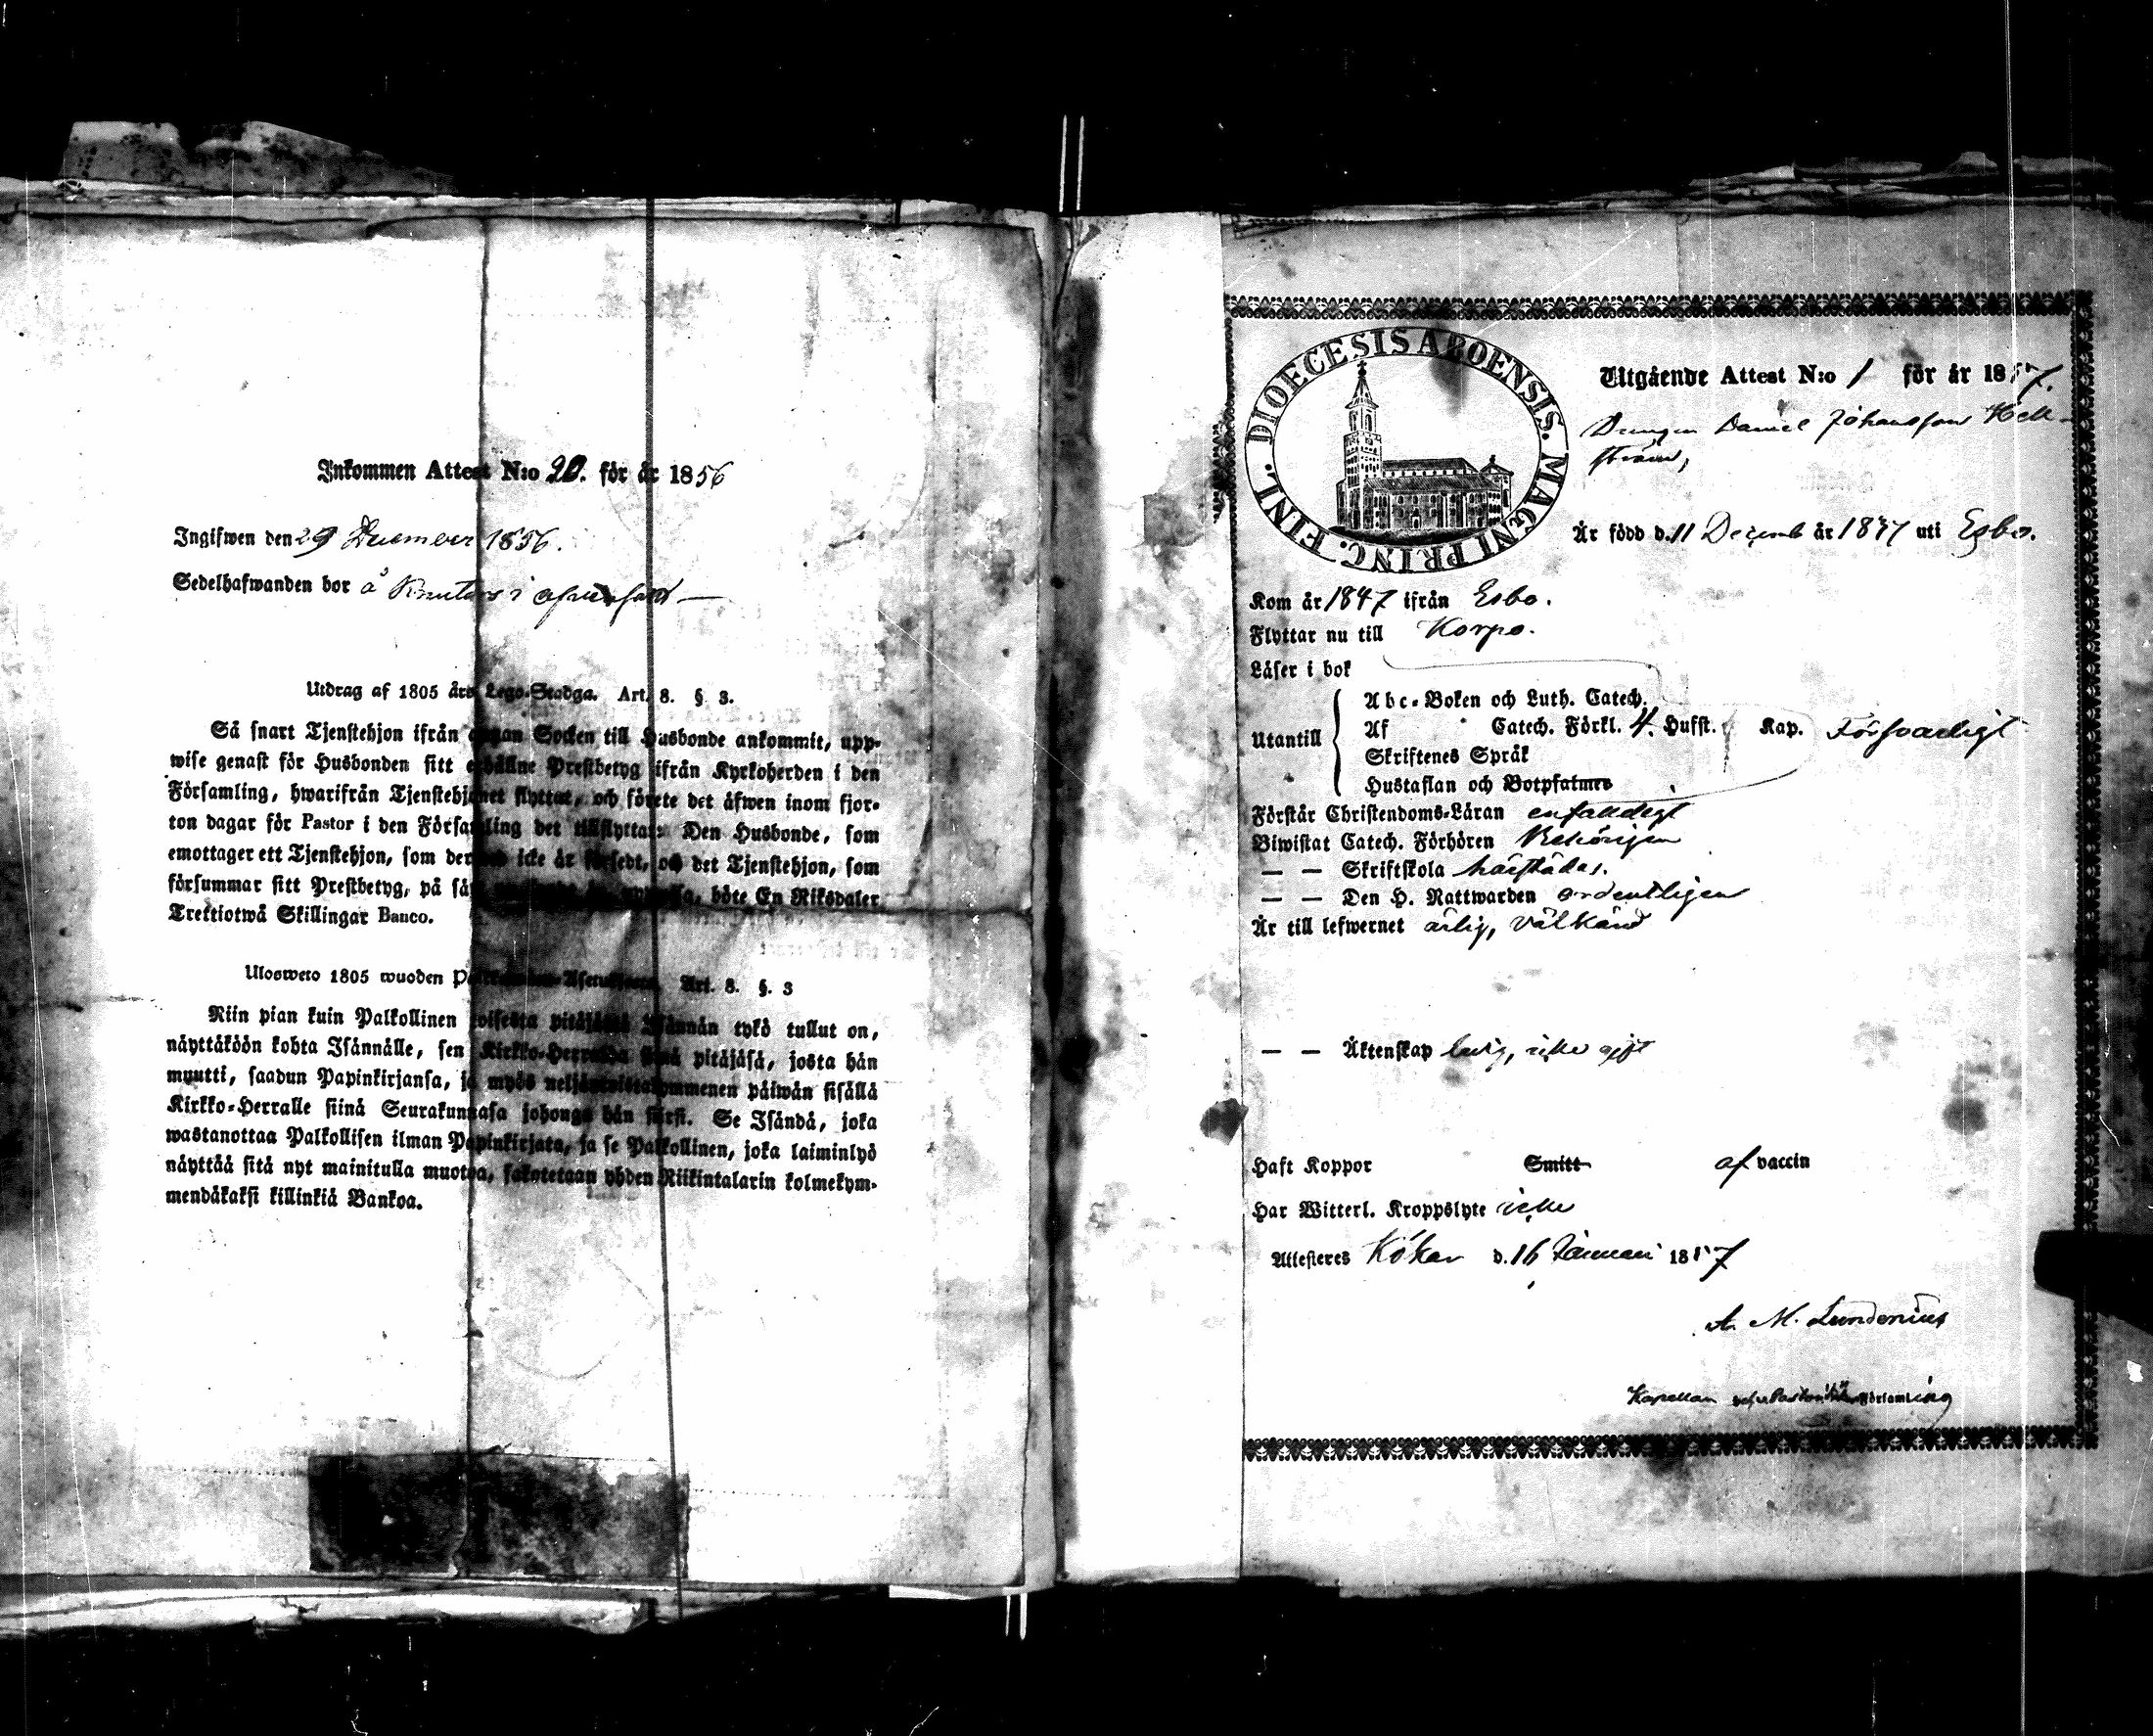 Inkommen Attest N:o 20. för år 1856
Ingifwen den 29 December 1856.
Sedelhafwanden bor å Knuters i
Utdrag af 1805 års Lego-Stadga. Art. 8. § 3.
Så snart Tjenstehjon ifrån annan Socken till Husbonde ankommit, upp-
wise genast för Husbonden sitt erhållne Prestbetyg ifrån Kyrkoherden i den
Församling, hwarifrån Tjenstehjonet flyttat, och förete det äfwen inom fjor-
ton dagar för Pastor i den Församling det tillflyttar. Den Husbonde, som
emottager ett Tjenstehjon, som dermed icke är försedt, och det Tjenstehjon, som
försummar sitt Prestbetyg, på sätt böte En Riksdaler
Trettiotwå Skillingar Banco.
Ulosweto 1805 wuoden Art. 8. §. 3
Niin pian kuin Palkollinen toisesta pitäjästä Isännän tykö tullut on,
näyttäköön kohta Isännälle, sen Kirkko-Herralda siinä pitäjäsä, josta hän
muutti, saadun Papinkirjansa, ja myös neljäntoistakymmenen päiwän sisällä
Kirkko-Herralle siinä Seurakunnasa johonga hän siirsi. Se Isändä, joka
wastanottaa Palkollisen ilman Papinkirjata, ja se Palkollinen, joka laiminlyö
näyttää sitä nyt mainitulla muotoa, sakotetaan yhden Riikintalarin kolmekym-
mendäkaksi killinkiä Bankoa.
DIOECESIS ABOENSIS. MAGNI PRINC. FINL.
Utgående Attest N:o 1 för år 1857.
Drengen Daniel Johansson Hell-
ström,
Är född d. 11 Decemb år 1837 uti Esbo.
Kom år 1847 ifrån Esbo.
Flyttar nu till Korpo.
Läser i bok
Utantill
Abc-Boken och Luth. Catech.
Af Catech. Förkl. 4. Hufst. Kap. Försvarligt
Skriftenes Språk
Hustaflan och Botpsalmer
Förstår Christendoms-Läran enfalldigt
Biwistat Catech. Förhören Behörigen
— — Skriftskola härstädes.
— — Den H. Nattwarden ordentligen
Är till lefwernet ärlig, välkänd
— — Äktenskap ledig, icke gift
Haft Koppor Smitt af vaccin
Har Witterl. Kroppslyte icke
Attesteres Kökar d. 16 Januari 1857
A. M. Lundenius
Kapellan Församling